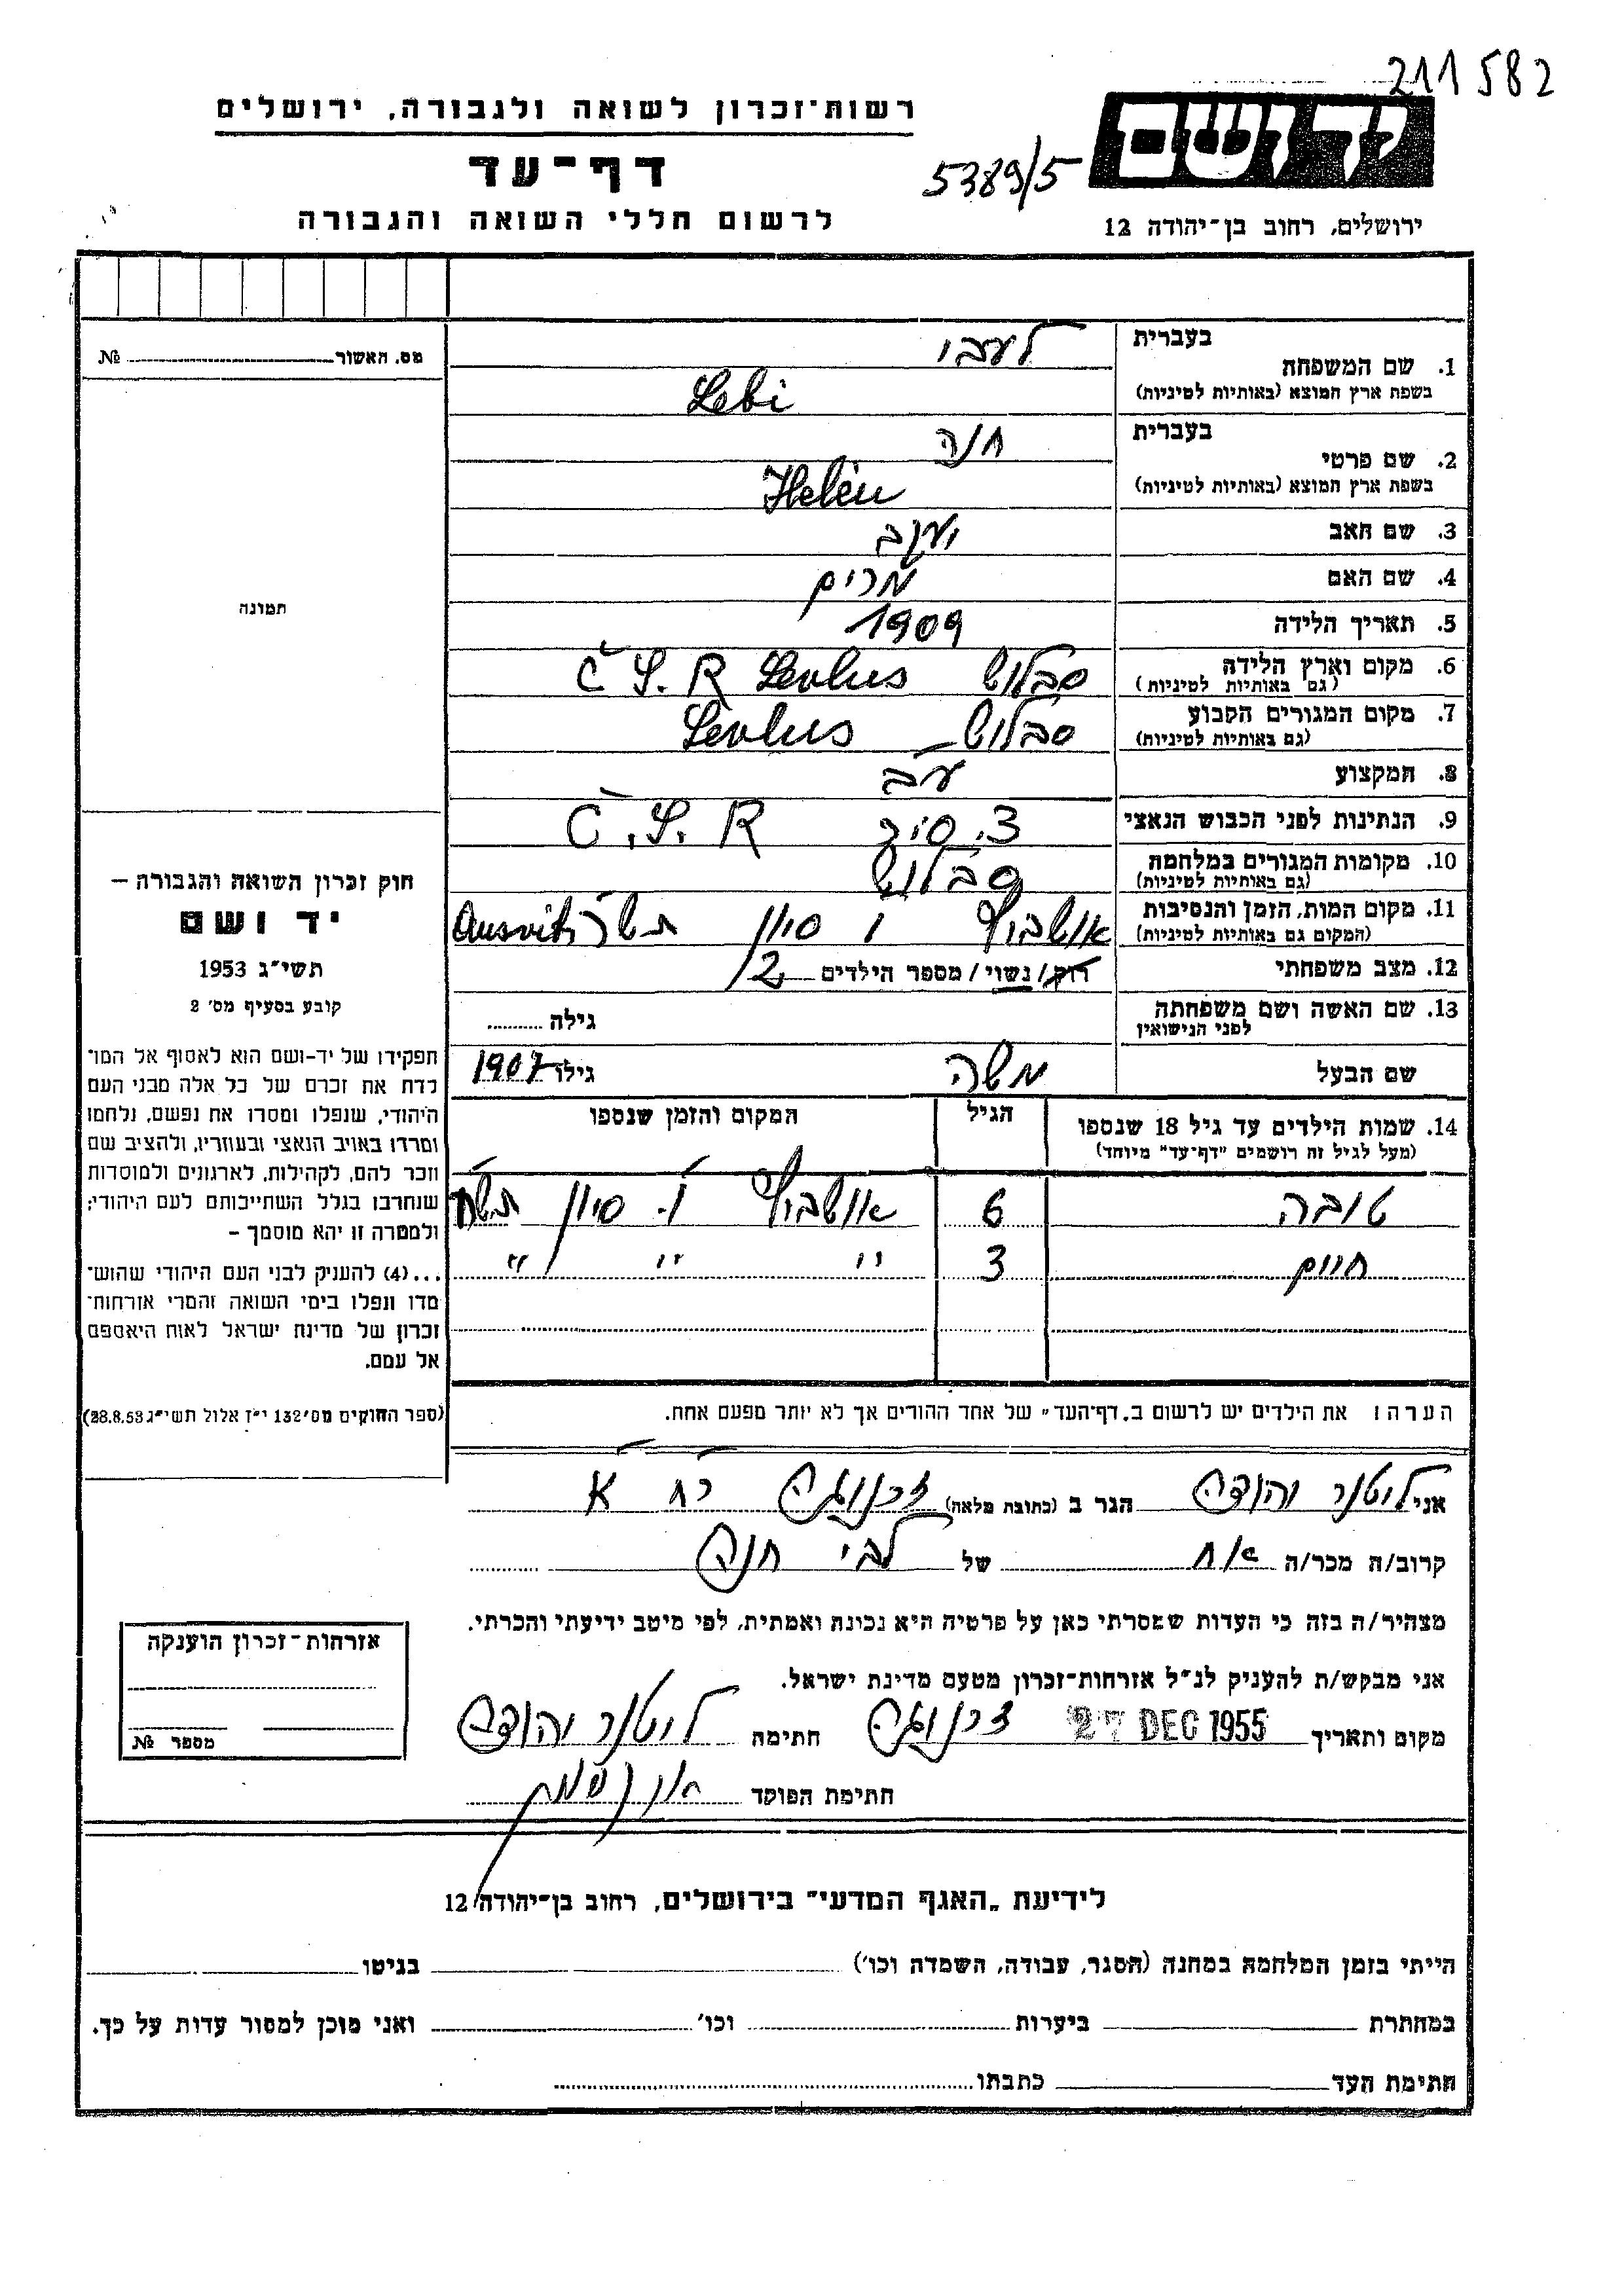 211582
רשות־זכרון לשואה ולגבורה, ירושלים
יד ושם
דף־עד
5389/5
לרשום חללי השואה והגבורה
ירושלים, רחוב בן־יהודה 12
מס. האשור № 
בעברית לעבי
1. שם המשפחה
בשפת ארץ המוצא (באותיות לטיניות) Lebi
בעברית חנה
2. שם פרטי
בשפת ארץ המוצא (באותיות לטיניות) Helen
3. שם האב יעקב
4. שם האם מרים
תמונה
5. תאריך הלידה 1909
6. מקום וארץ הלידה סבלוש Sevlus Č S. R
(גם באותיות לטיניות)
7. מקום המגורים הקבוע סבלוש Sevlus
(גם באותיות לטיניות)
8. המקצוע
9. הנתינות לפני הכבוש הנאצי צ. ס. ר Č. S. R
10. מקומות המגורים במלחמה סבלוש
(גם באותיות לטיניות)
11. מקום המות, הזמן והנסיבות אושביץ ו סיון Ausvitz
(המקום גם באותיות לטיניות)
12. מצב משפחתי רוק/נשוי/ מספר הילדים 2
13. שם האשה ושם משפחתה גילה
לפני הנישואין
שם הבעל משה גילו 1907
חוק זכרון השואה והגבורה –
יד ושם
תשי״ג 1953
קובע בסעיף מס׳ 2
תפקידו של יד-ושם הוא לאסוף אל המו־
לדת את זכרם של כל אלה מבני העם
היהודי, שנפלו ומסרו את נפשם, נלחמו
ומרדו באויב הנאצי ובעוזריו, ולהציב שם
וזכר להם, לקהילות, לארגונים ולמוסדות
שנחרבו בגלל השתייכותם לעם היהודי;
ולמטרה זו יהא מוסמך –
...(4) להעניק לבני העם היהודי שהוש־
מדו ונפלו בימי השואה והמרי אזרחות־
זכרון של מדינת ישראל לאות היאספם
אל עמם.
(ספר החוקים מס׳ 132 י״ז אלול תשי״ג 28.8.53)
14. שמות הילדים עד גיל 18 שנספו הגיל המקום והזמן שנספו
(מעל לגיל זה רושמים "דף־עד" מיוחד)
טובה 6 אושביץ ו. סיון
חיים 3 " " "
הערה: את הילדים יש לרשום ב„דף־העד״ של אחד ההורים אך לא יותר מפעם אחת.
אני ליטנר יהודה הגר ב (כתובת מלאה) זרנוגה
קרוב/ה מכר/ה אח של לבי חנה
מצהיר/ה בזה כי העדות שמסרתי כאן על פרטיה היא נכונה ואמתית, לפי מיטב ידיעתי והכרתי.
אני מבקש/ת להעניק לנ״ל אזרחות־זכרון מטעם מדינת ישראל.
מקום ותאריך 27 DEC 1955 זרנוגה חתימה ליטנר יהודה
חתימת הפוקד
אזרחות־זכרון הוענקה
מספר №
לידיעת „האגף המדעי״ בירושלים, רחוב בן־יהודה 12
הייתי בזמן המלחמה במחנה (הסגר, עבודה, השמדה וכו׳) בגיטו
במחתרת ביערות וכו׳ ואני מוכן למסור עדות על כך.
חתימת העד כתבתו